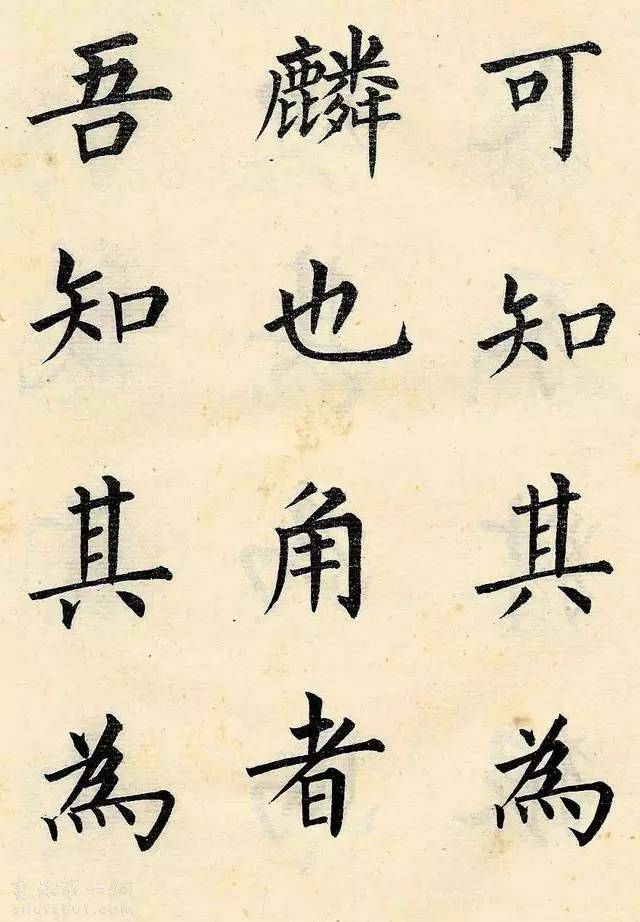 可知其為
麟也角者
吾知其為
書法第一網
shufa001.com